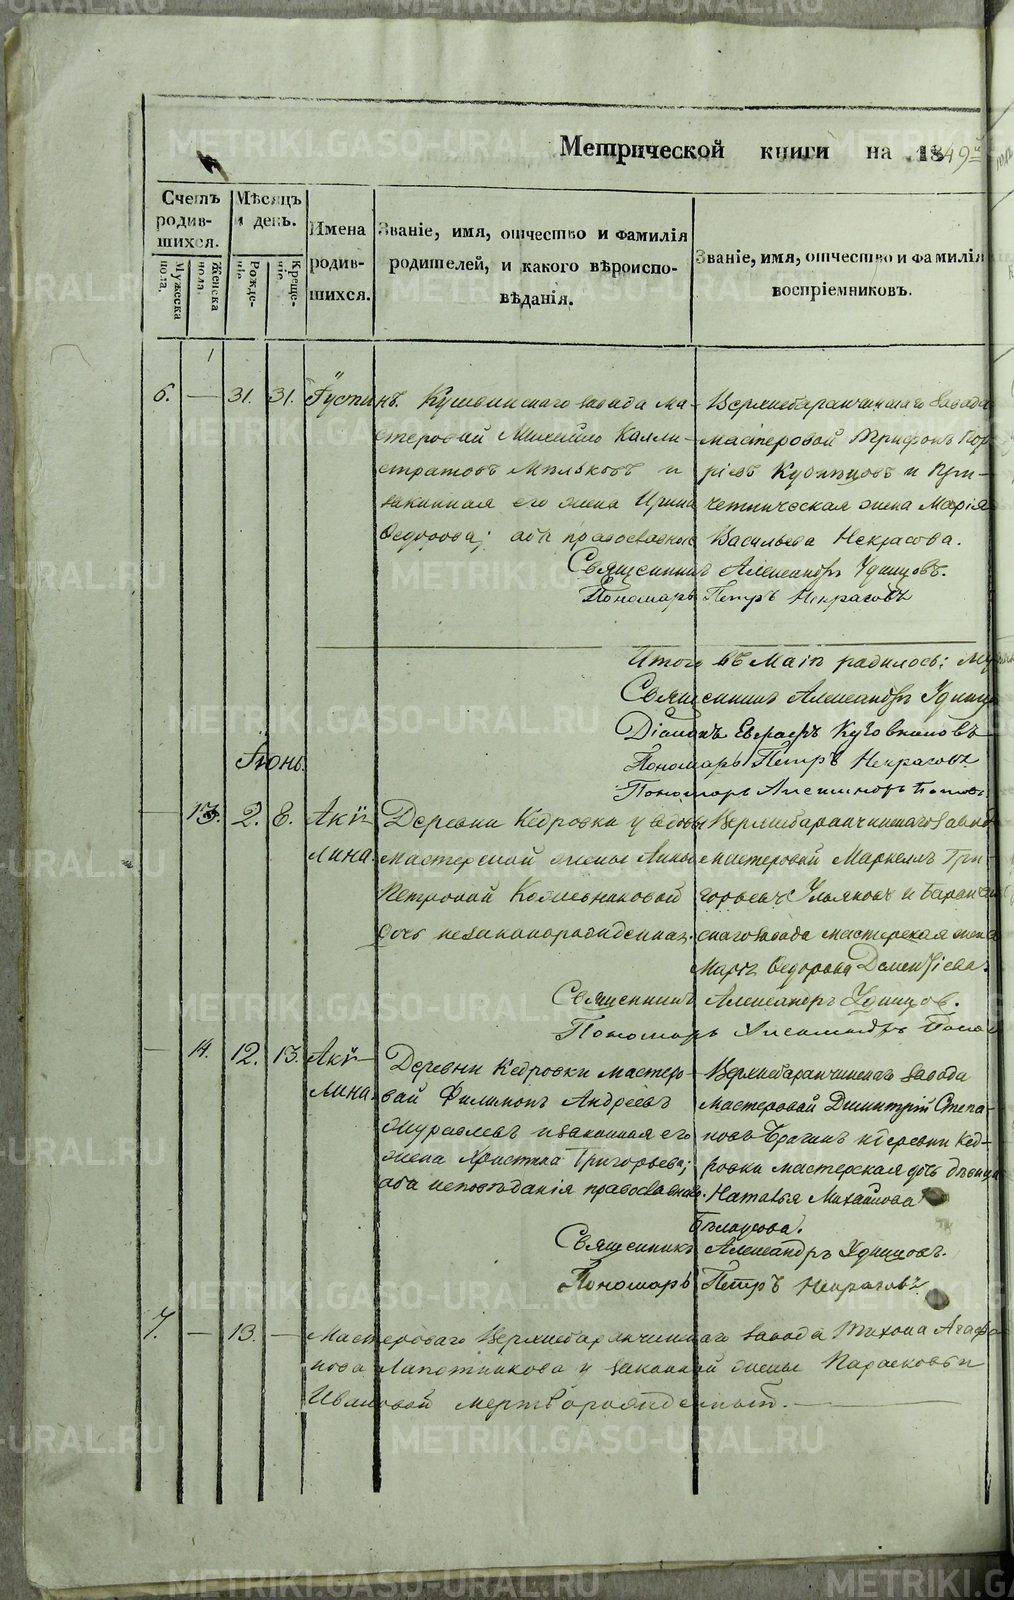 Метрической книги на 1849й
Счетъ родив-шихся.
Мужеска пола.
Женска пола.
Мѣсяцъ и день.
Рожде-ніе.
Креще-ніе.
Имена родив-шихся.
Званіе, имя, отчество и фамилія
родителей, и какого вѣроиспо-
вѣданія.
Званіе, имя, отчество и фамилія
воспріемниковъ.
6. — 31. 31. Іустинъ.
Кушвинскаго завода Ма-
стеровой Михайло Калли-
стратовъ и
законная его жена Ирина
Ѳедорова; оба православные
Верхнебаранчинскаго завода
мастеровой Трифонъ
Кузнецовъ и При-
четническая жена Марія
Васильева Некрасова.
Священникъ Александръ Удинцовъ.
Пономарь Петръ Некрасовъ
Итого въ Маіѣ родилось:
Священникъ Александръ
Діаконъ
Пономарь Петръ Некрасовъ
Пономарь
Іюнь.
— 13. 2. 8. Акилина.
Деревни Кедровки у вдовы
мастерской жены Анны
Петровой Кожевниковой
дочь незаконорожденная.
Верхнебаранчинскаго завода
мастеровой Маркелъ Гри-
горьевъ Ульяновъ и Баранчин
скаго завода мастерская жена
Марія Ѳедорова Дементіева.
Священникъ Александръ Удинцов.
Пономарь Александръ
— 14. 12. 13. Акилина.
Деревни Кедровки мастеро-
вой Филимонъ Андреевъ
Журавлевъ и законная его
жена Христина Григорьева;
оба исповѣданія православнаго.
Верхнебаранчинскаго завода
мастеровой Димитрій Степа-
новъ Брагинъ и деревни Кед-
ровки мастерская дочь дѣвица
Наталья Михайлова
Бѣлоусова.
Священникъ Александръ Удинцовъ.
Пономарь Петръ Некрасовъ
7. — 13. —
Мастероваго Верхнебаранчинскаго завода Тихона Агафо
нова Лапотникова у законной жены Парасковьи
Ивановой мертворожденный.
METRIKI.GASO-URAL.RU